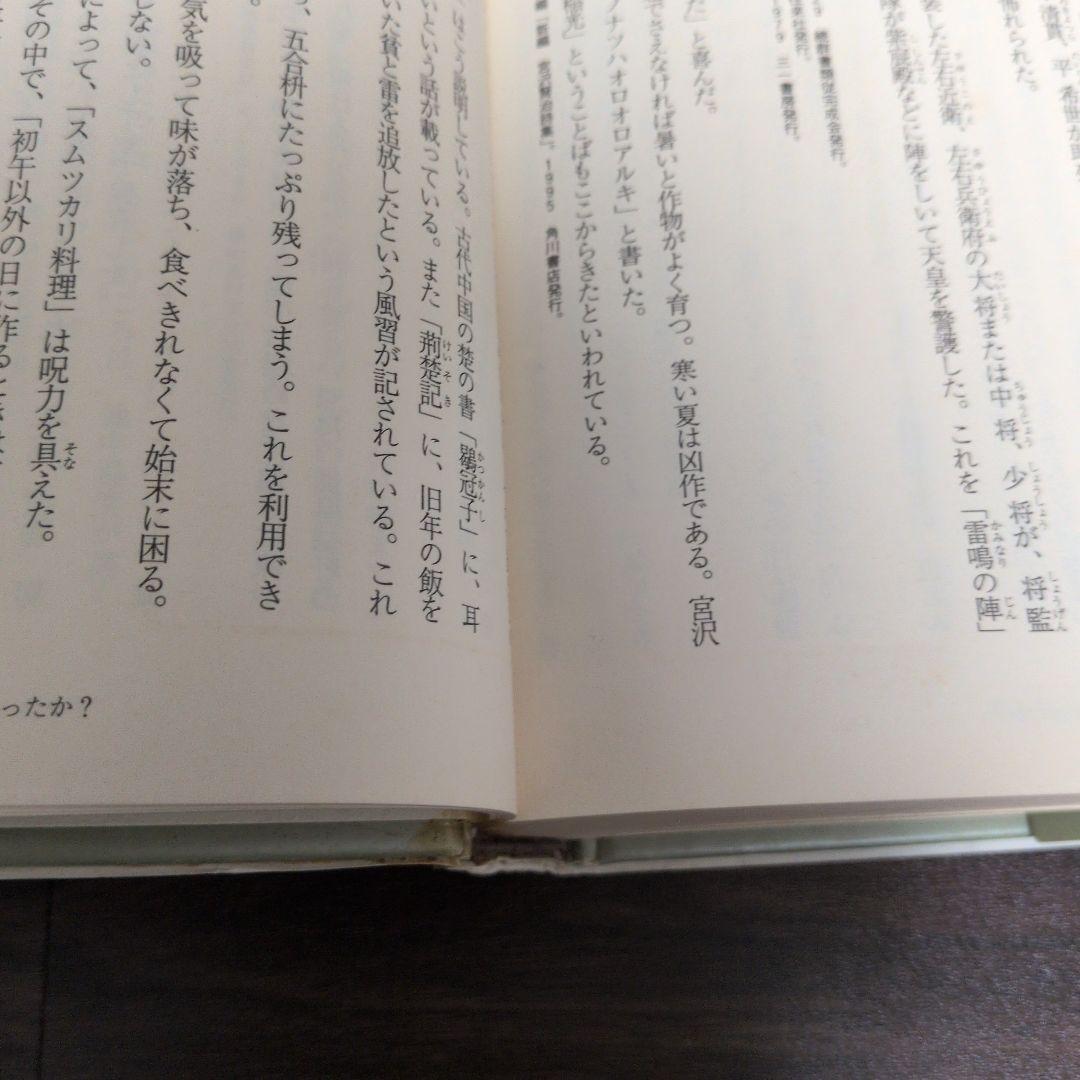 清貴、平希世が
惧れられた。
姿した左右近衛、左右兵衛府の大将または中将、少将が、将監
紫宸殿などに陣をしいて天皇を警護した。これを「雷鳴の陣」
発行。
1979 三一書房発行。
だ」と喜んだ。
でさえなければ暑いと作物がよく育つ。寒い夏は凶作である。宮沢
ナツハオロオロアルキ」と書いた。
1995 角川書店発行。
ということばもここからきたといわれている。
はこう説明している。古代中国の楚の書「鶡冠子」に、耳
いという話が載っている。また「荊楚記」に、旧年の飯を
いた貧と雷を追放したという風習が記されている。これ
、五合枡にたっぷり残ってしまう。これを利用でき
。
気を吸って味が落ち、食べきれなくて始末に困る。
しない。
によって、「スムツカリ料理」は呪力を具えた。
その中で、「初午以外の日に作る
ったか？